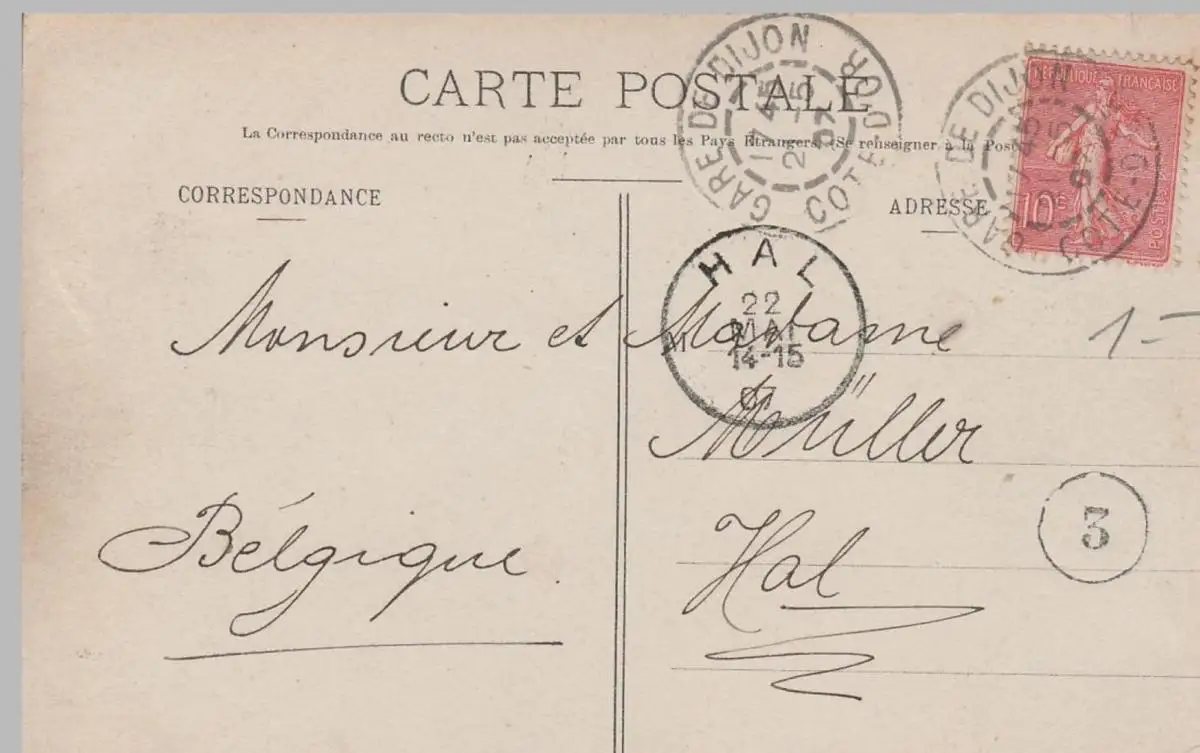 CARTE POSTALE
La Correspondance au recto n'est pas acceptée par tous les Pays Etrangers, (Se renseigner à la Poste
CORRESPONDANCE
ADRESSE
GARE DE DIJON
COTE-D'OR
17 45
2
5
07
GARE DE DIJON
COTE-D
REPUBLIQUE FRANÇAISE
10 c
POSTES
HAL
22
MAI
14-15
07
Monsieur et Madame
1-
Müller
3
Bélgique.
Hal